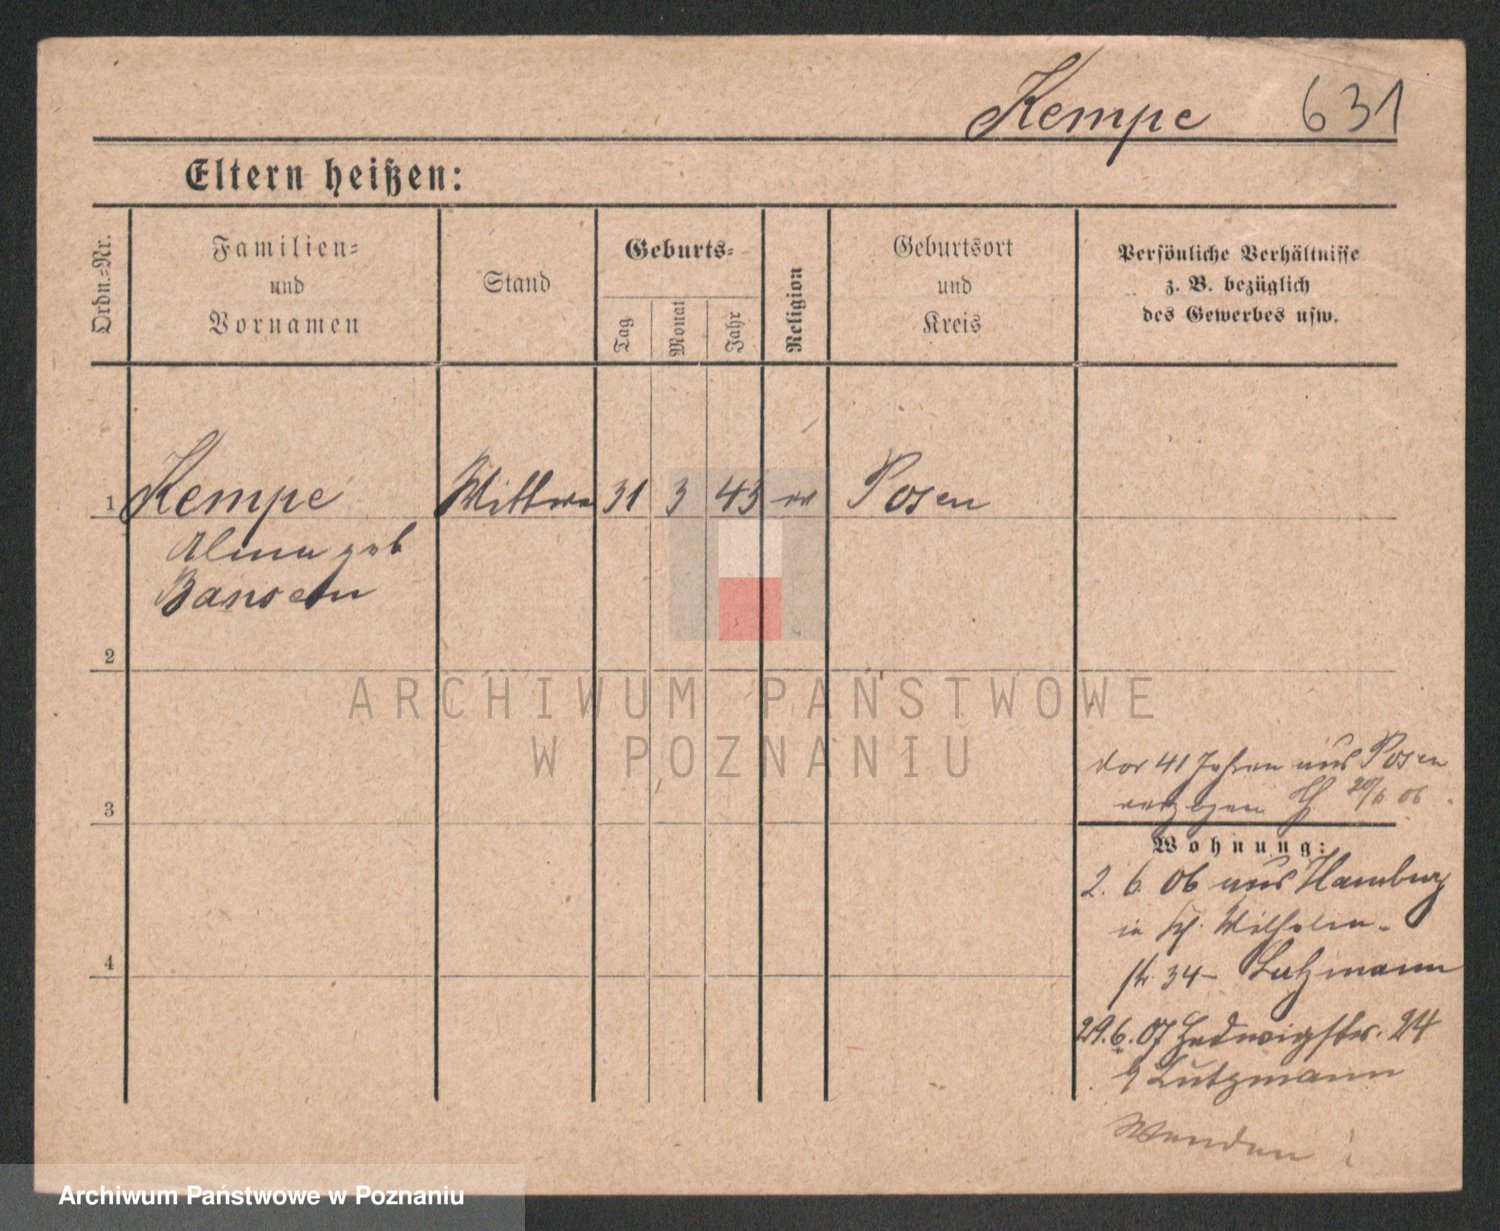 Kempe 631
Eltern heißen:
Ordn.-Nr.
Familien-
und
Vornamen
Stand
Geburts-
Tag
Monat
Jahr
Religion
Geburtsort
und
Kreis
Persönliche Verhältnisse
z. B. bezüglich
des Gewerbes usw.
1 Kempe Wittwe 31 3 43 ev Posen
Alma geb
2
ARCHIWUM PAŃSTWOWE
W POZNANIU
vor 41 Jahren aus Posen
verzogen 20/6 06
3
Wohnung:
2. 6. 06 aus Hamburg
in Wilhelm-
str 34 - Lutzmann
4
29. 6. 07 Hedwigstr. 24
b Lutzmann
Wenden!
Archiwum Państwowe w Poznaniu